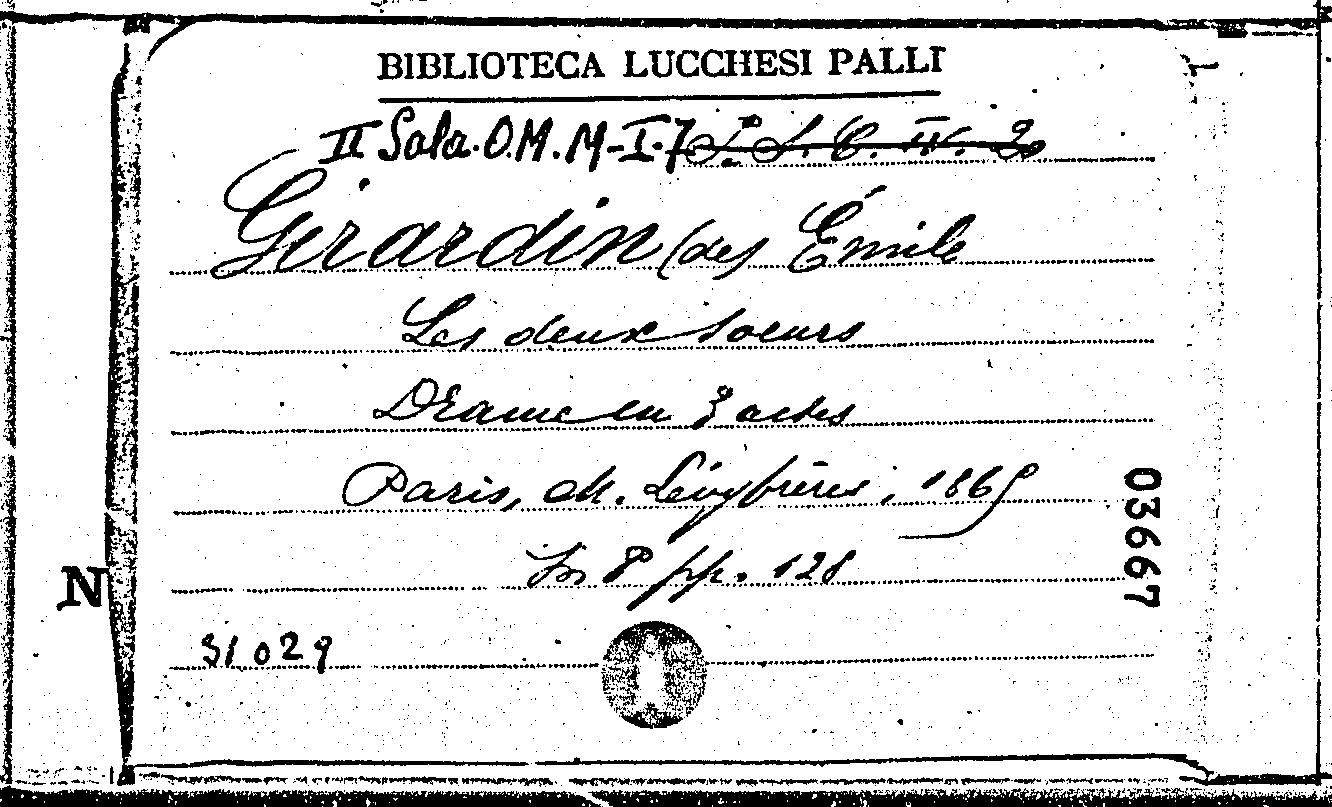 BIBLIOTECA LUCCHESI PALLI
II Sala. O.M. M-I-7 P. S. C. IV. 2o
Girardin (de) Émile
Les deux soeurs
Drame en 3 actes
Paris, M. Lévy frères, 1865
In 8° pp. 128
03667
N
31029